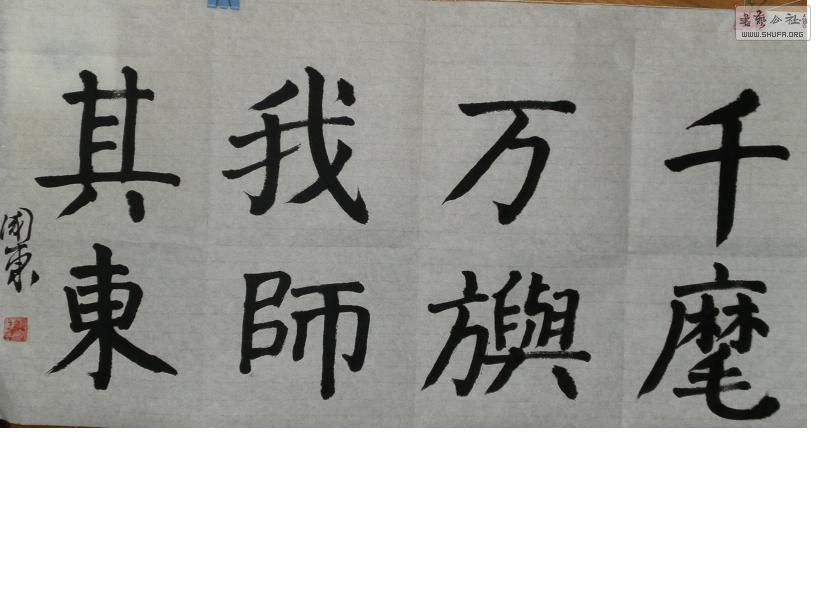 千麾
万旟
我師
其東
國東
書藝公社
WWW.SHUFA.ORG